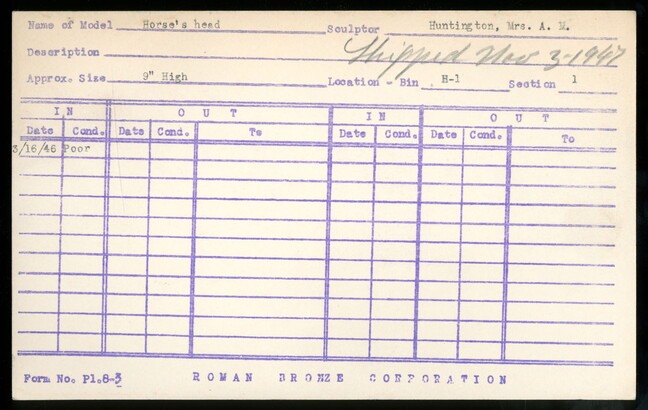 Name of Model Horse's head Sculptor Huntington, Mrs. A. M.
Description Shipped Nov 3-1947
Approx. Size 9" High Location - Bin H-1 Section 1
IN OUT IN OUT
Date Cond. Date Cond. To Date Cond. Date Cond. To
3/16/46 Poor
Form No. Pl.8-3 ROMAN BRONZE CORPORATION